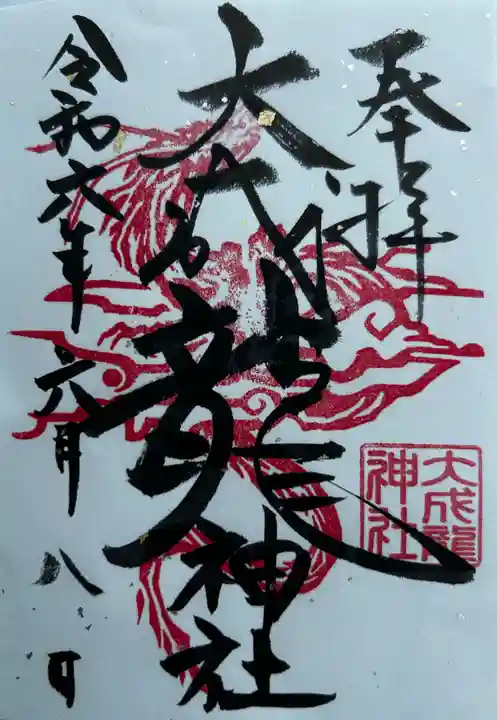 奉拝
大成龍神社
大成龍
神社
令和六年六月八日